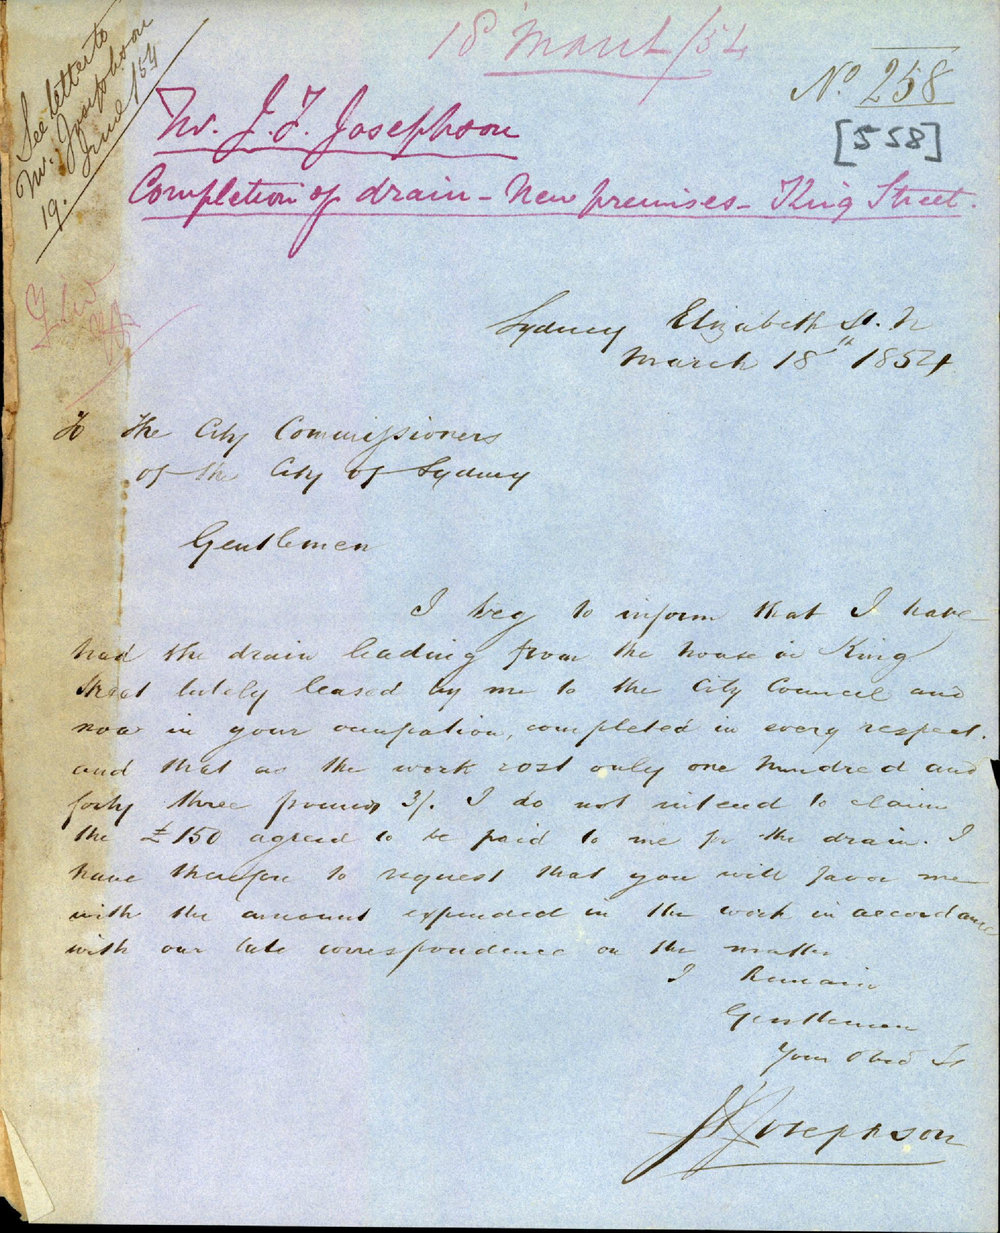 See letter to
Mr. Josephson
19. June / 54
18 March / 54
No. 258
[558]
Mr. J. F. Josephson
Completion of drain - New premises - King Street.
Sydney Elizabeth St. N
March 18th 1854
To The City Commissioners
of the City of Sydney
Gentlemen
I beg to inform that I have
had the drain leading from the house in King
Street lately leased by me to the City Council and
now in your occupation, completed in every respect.
and that as the work cost only one hundred and
forty three pounds 3/. I do not intend to claim
the £150 agreed to be paid to me for the drain. I
have therefore to request that you will favor me
with the amount expended in the work in accordance
with our late correspondence on the matter
I Remain
Gentlemen
Your Obed St
J F Josephson